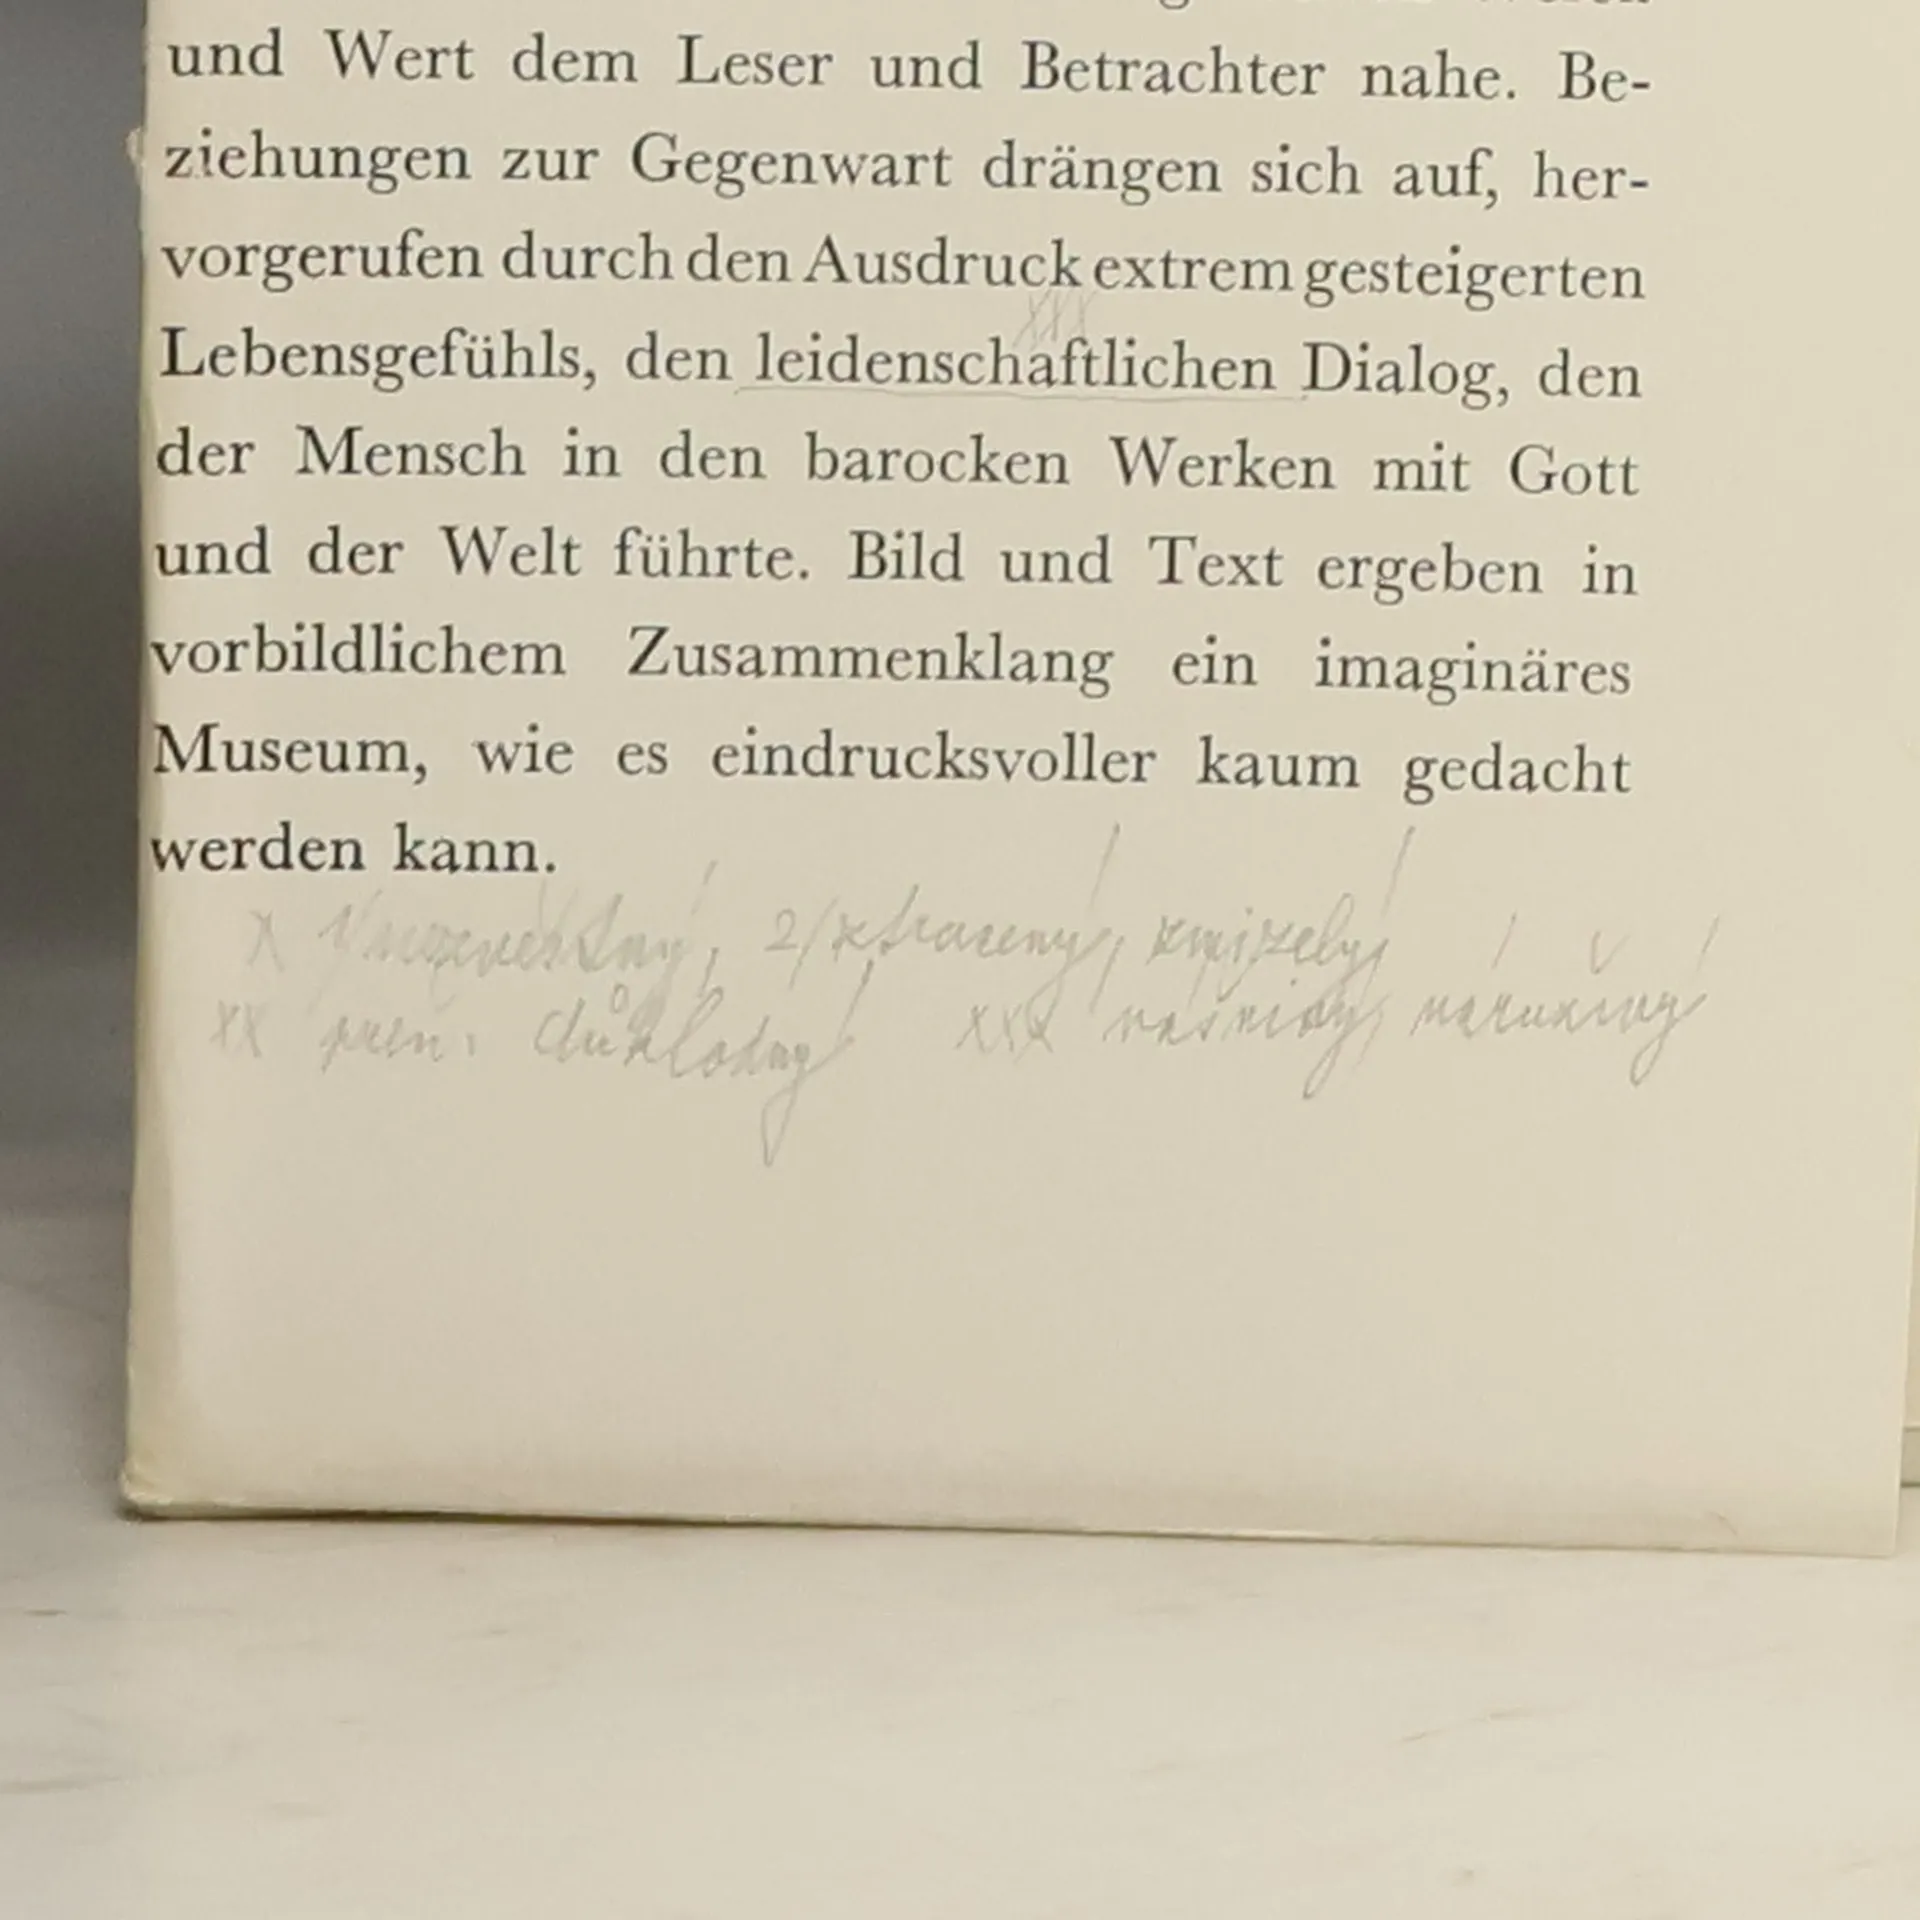 und Wert dem Leser und Betrachter nahe. Be-
ziehungen zur Gegenwart drängen sich auf, her-
vorgerufen durch den Ausdruck extrem gesteigerten
xxx
Lebensgefühls, den leidenschaftlichen Dialog, den
der Mensch in den barocken Werken mit Gott
und der Welt führte. Bild und Text ergeben in
vorbildlichem Zusammenklang ein imaginäres
Museum, wie es eindrucksvoller kaum gedacht
werden kann.
x 1/ 2/ ztracený, zmizelý
xx přen. důkladný xxx vášnivý, náruživý